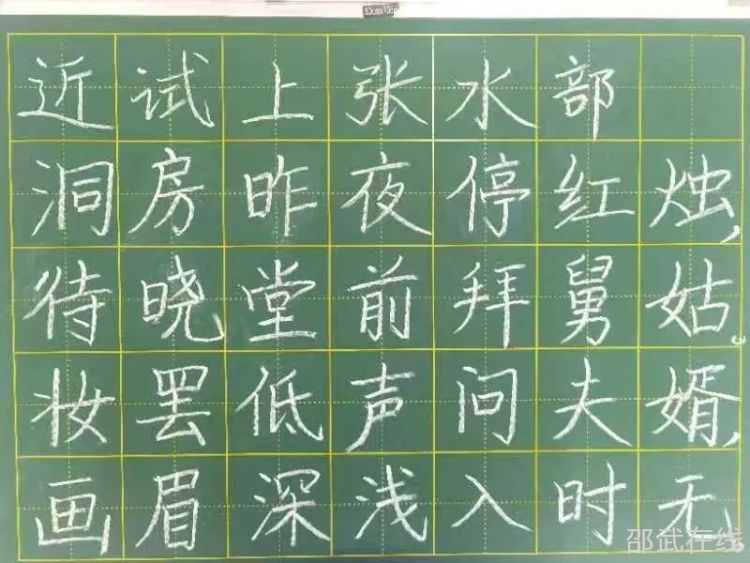 近试上张水部
洞房昨夜停红烛，
待晓堂前拜舅姑。
妆罢低声问夫婿，
画眉深浅入时无。
邵武在线